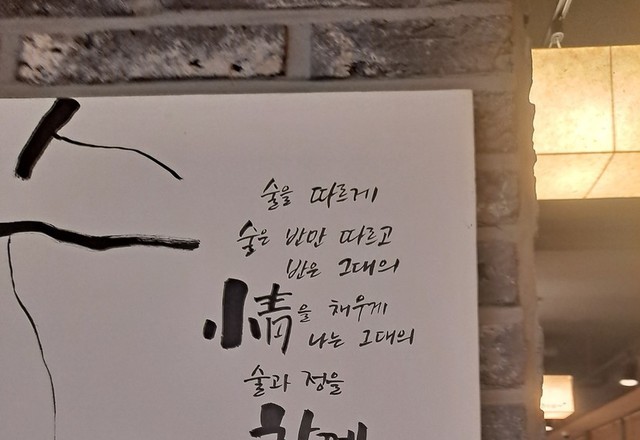 술을 따르게
술은 반만 따르고
반은 그대의
情을 채우게
나는 그대의
술과 정을
함께